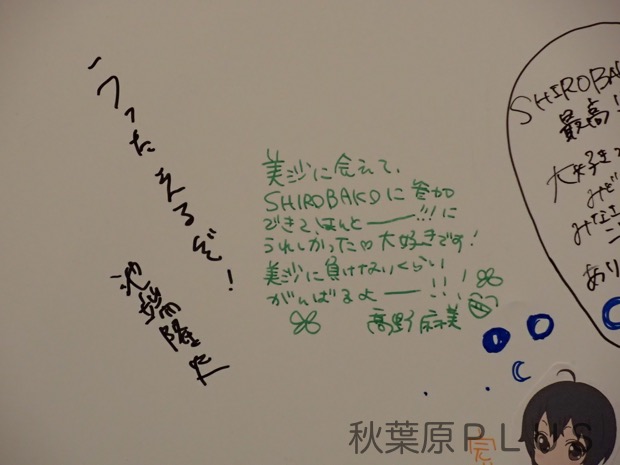 うったえるぞ！
池端隆史
美沙に会えて、
SHIROBAKOに参加
できて、ほんと――!!!に
うれしかった♡大好きです！
美沙に負けないくらい
がんばるよ――!!!
髙野麻美
SHIROBA
最高！
大好きで
みなさ
あり
秋葉原PLUS